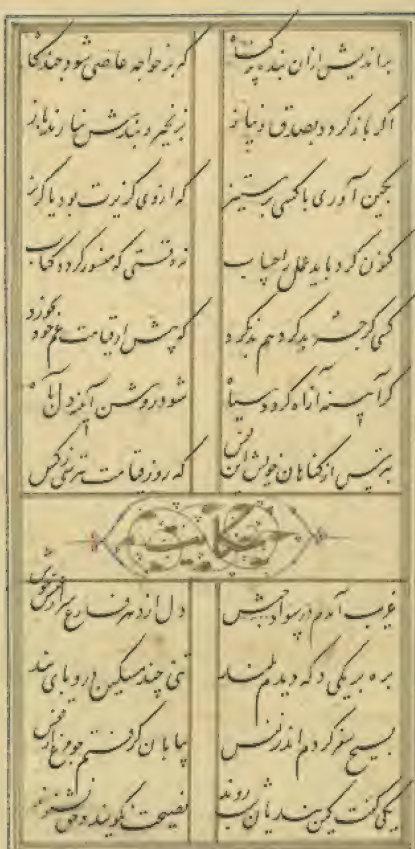 براندیش ازان بنده پر گناه که از خواجه عاصی شود چند گاه
اگر باز گردد بصدق و نیاز بزنجیر و بندش نیارند باز
بکین آوری با کسی بر ستیز که از وی گزیرت بود یا گریز
کنون کرد باید عمل را حساب نه وقتی که منشور گردد کتاب
کسی گرچه بد کرد هم بد نکرد که پیش از قیامت غم خود بخورد
گر آیینه از آه گردد سیاه شود روشن آیینه دل به آه
بترس از گناهان خویش این نفس که روز قیامت نترسی ز کس
حکایت
غریب آمدم در سواد حبش دل از دهر فارغ سر از عیش خوش
بره بر یکی دکه دیدم بلند تنی چند مسکین درو پای بند
بسیج سفر کردم اندر نفس بیابان گرفتم چو مرغ از قفس
یکی گفت کین بندیان شب روند نصیحت نگیرند و حق نشنوند